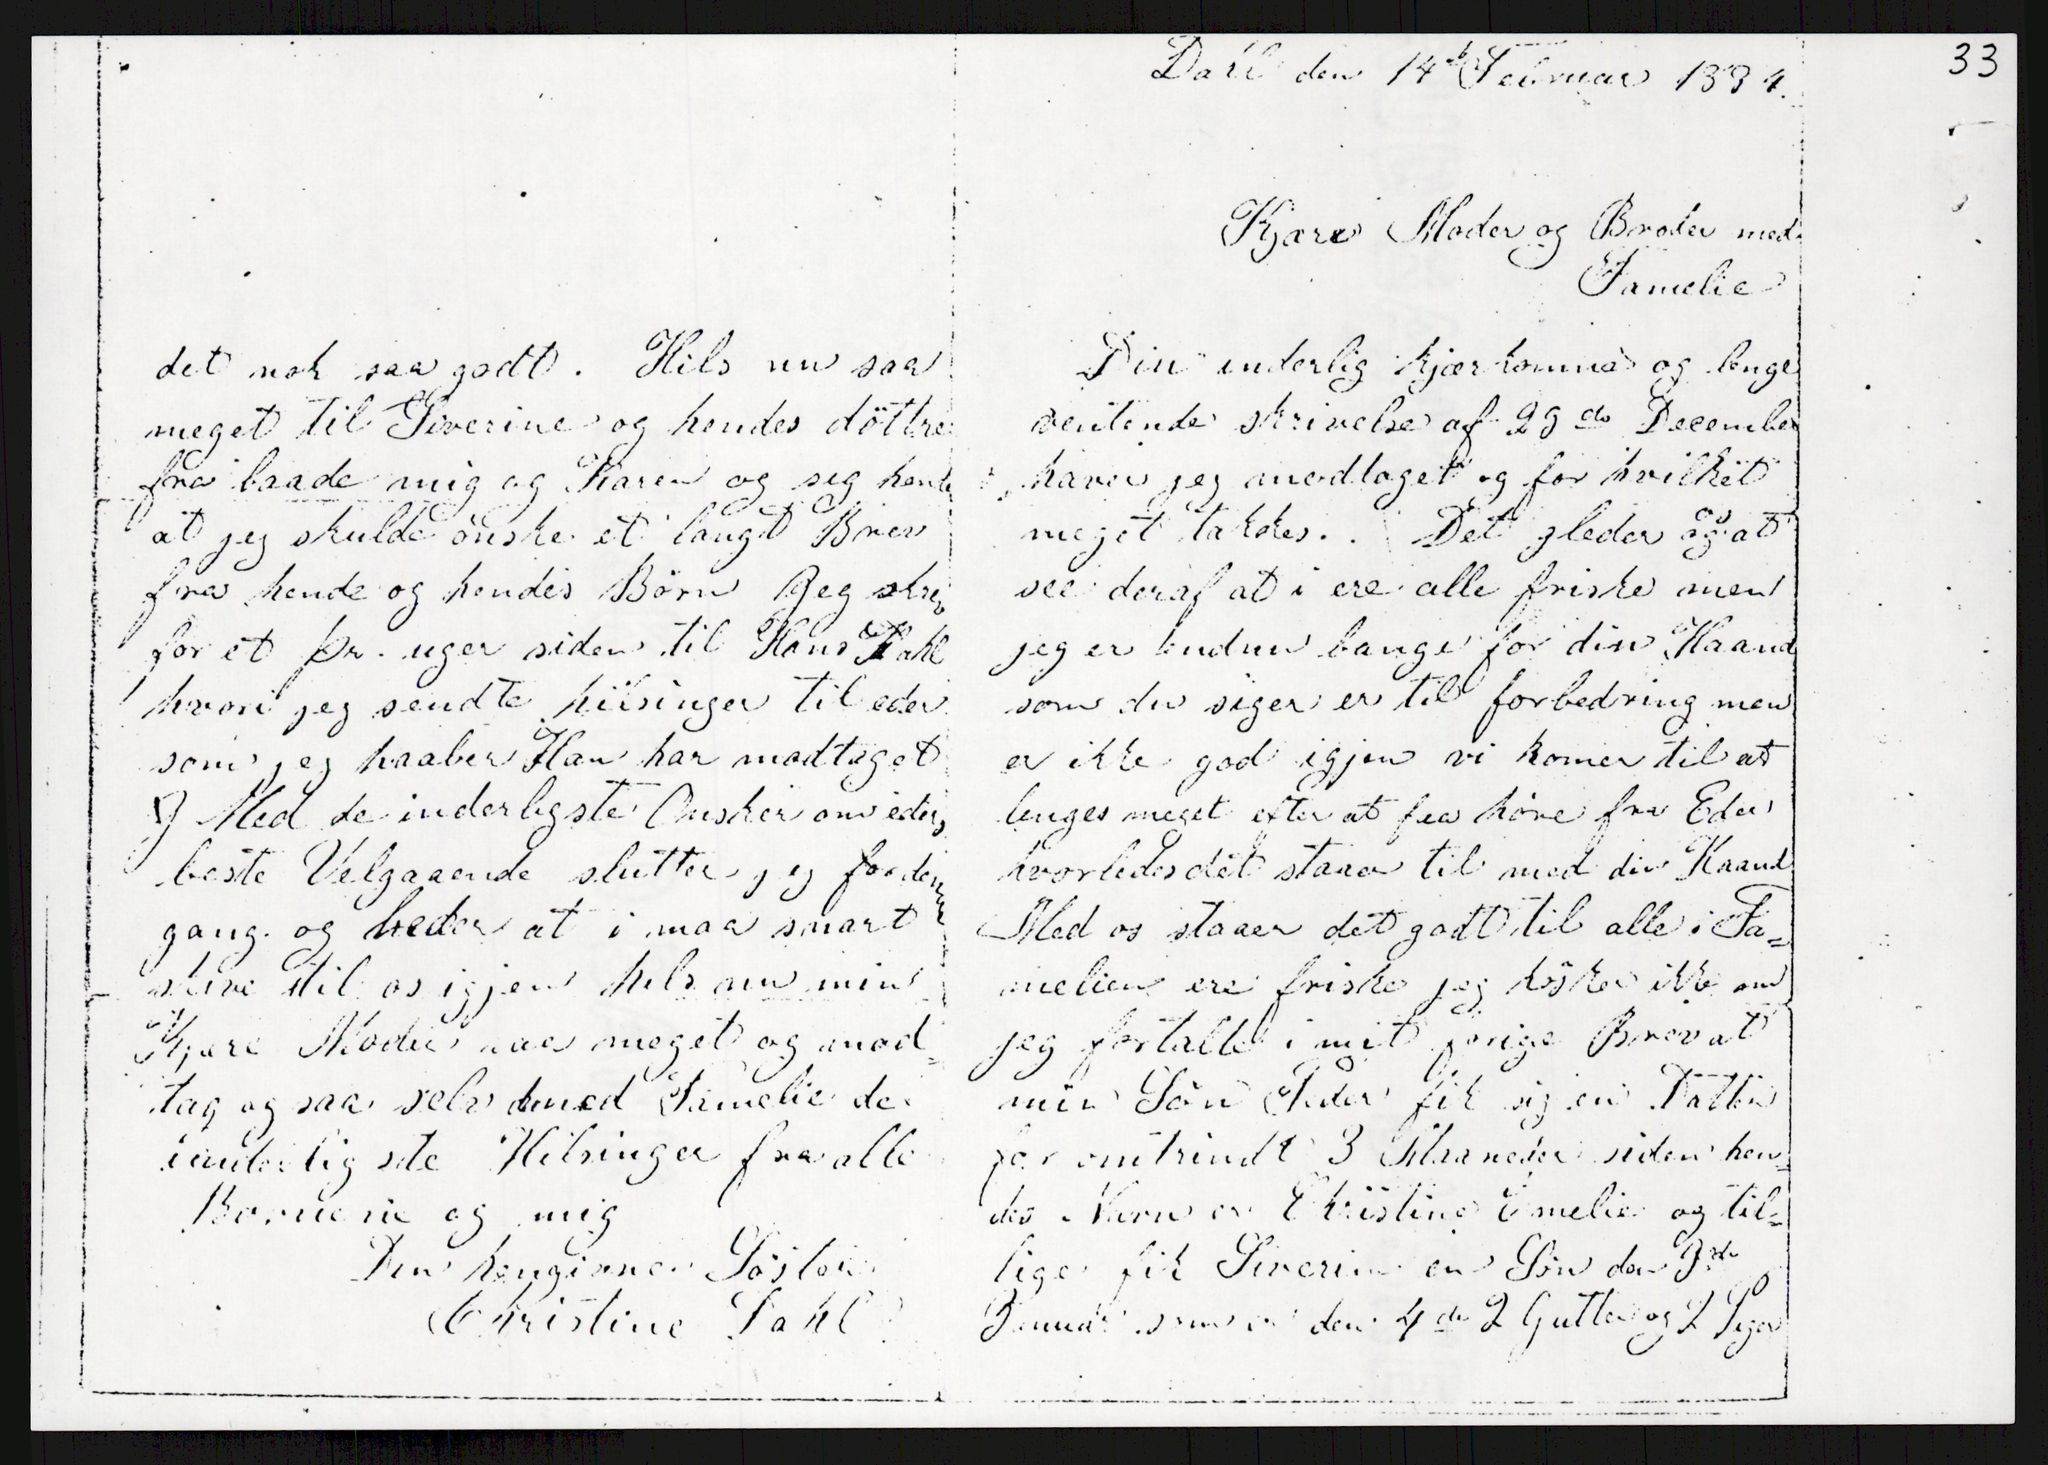 33
Dahl den 14de Februar 1884.
Kjære Moder og Broder med
Famelie
Din inderlig kjærkomne og lenge
ventende skrivelse af 29de December
haver jeg modtaget og for hvilket
meget takkes. Det gleder os at
see deraf at i ere alle friske men
jeg er endnu bange for din Haand
som du siger er til forbedring men
er ikke god igjen vi komer til at
lenges meget efter at faa høre fra Eder
hvorledes det staaer til med din Haand
Med os staaer det godt til alle i Fa=
melien ere friske jeg husker ikke om
jeg fortalte i mit forige Brev at
min Sön Peder fik sig en Datter
for omtrindt 3 Maaneder siden hen
des Navn er Christine Emelie og til=
lige fik Siverine en Sön den 3de
Januar som er den 4de 2 Gutter og 2 Piger
det nok saa godt. Hils nu saa
meget til Siverine og hendes döttre
fra baade mig og Karen og seg hende
at jeg skulde önske et langt Brev
fra hende og hendes Börn Jeg skrev
for et pr. uger siden til Hans Dahl
hvori jeg sendte hilsinger til eder
som jeg haaber Han har modtaget
Med de inderligste Ønsker om eders
beste Velgaaende slutter jeg for denne
gang og beder at i maa snart
skrive til os igjen hils nu min
Kjære Moder saa meget og mod=
tag og saa selv med Famelie de
inderligste Hilsinger fra alle
Bornene og mig
Din hengivne Söster
Christine Dahl